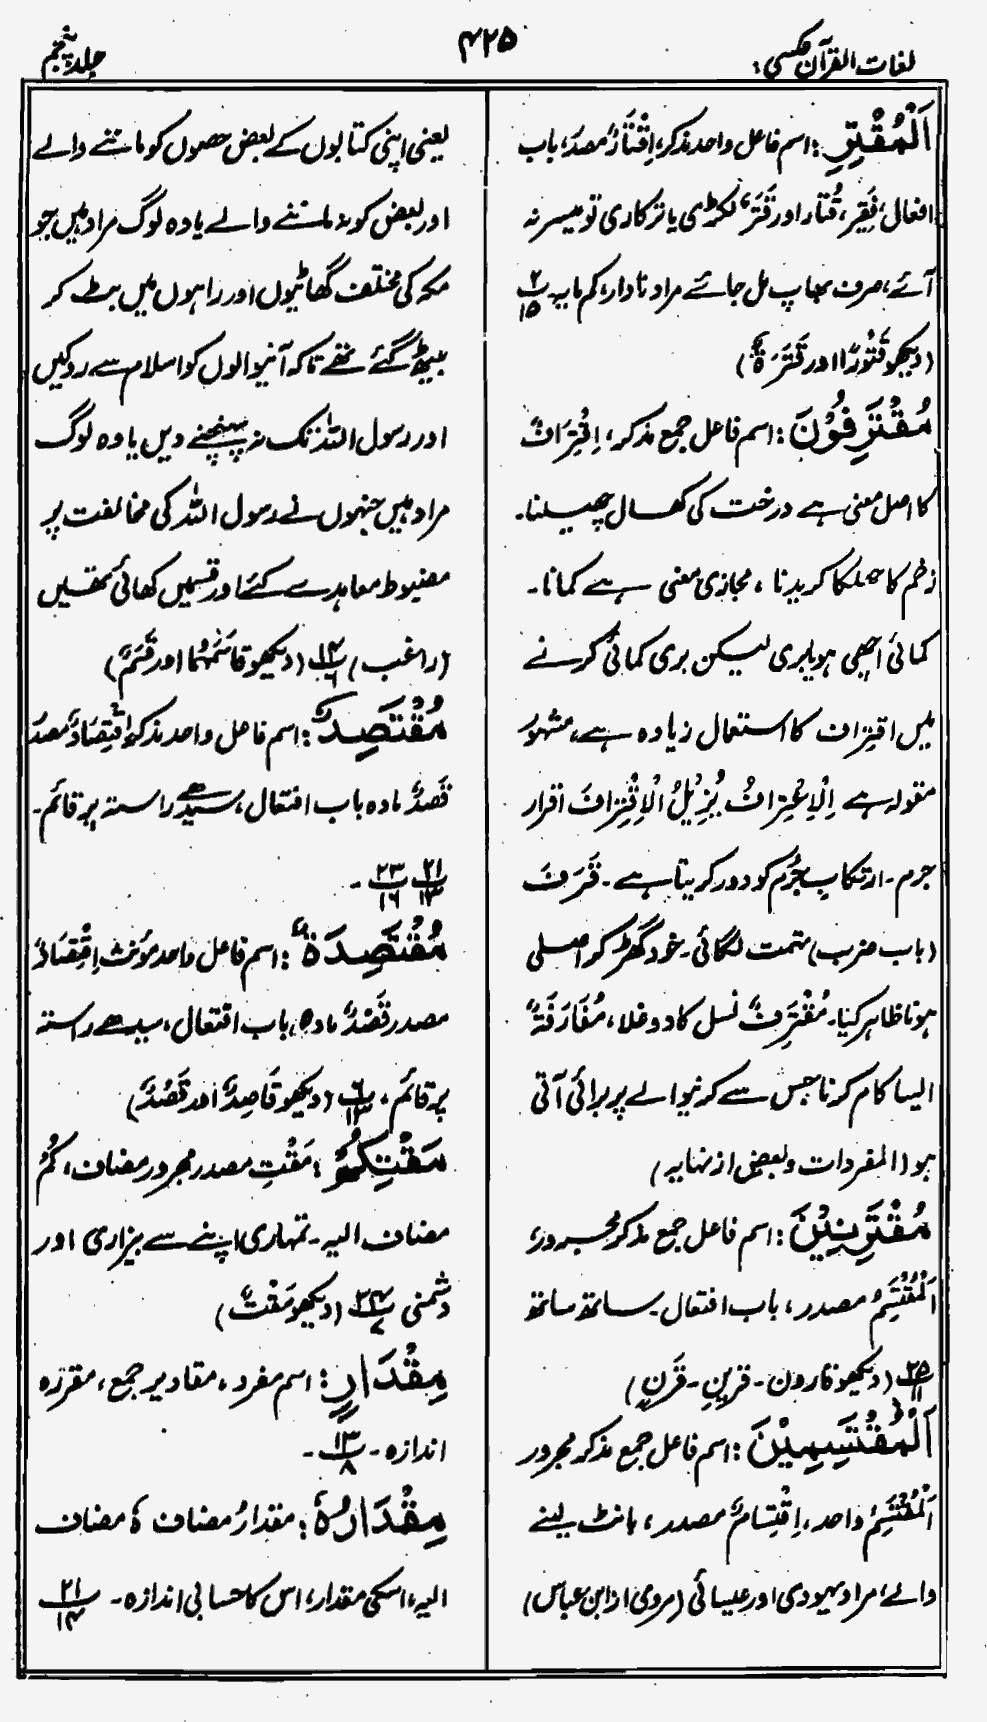 لغات القرآن عکسی:
۴۲۵
جلد پنجم
اَلْمُقْتِرِ: اسم فاعل واحد مذکر، اِقْتَارٌ مصدر، باب
افعال، قَتِیر، قُتار اور قَتَرٌ، لکڑی یا ترکاری تو میسر نہ
آئے، صرف بھاپ مل جائے مراد نادار، کم مایہ۔ ۲/۱۵
(دیکھو قَتُورًا اور قَتَرَۃٌ)
مُقْتَرِفُوْنَ: اسم فاعل جمع مذکر، اِقْتِرَافٌ
کا اصل معنی ہے درخت کی کھال چھیلنا۔
زخم کا چھلکا کریدنا، مجازی معنی ہے کمانا۔
کمائی اچھی ہو یا بری لیکن بری کمائی کرنے
میں اقتراف کا استعمال زیادہ ہے، مشہور
مقولہ ہے اِلْاِعْتِرَافُ یُزِیْلُ الْاِقْتِرَافَ اقرار
جرم۔ ارتکاب جُرم کو دور کر دیتا ہے۔ قَرَفَ
(باب ضرب) تہمت لگائی۔ خود گھڑ کر اصلی
ہونا ظاہر کیا۔ مُقْتَرِفٌ نسل کا دوغلا، مُقَارَفَۃٌ
ایسا کام کرنا جس سے کرنیوالے پر برائی آتی
ہو (المفردات وبعض از نہایہ)
مُقْتَرِنِیْنَ: اسم فاعل جمع مذکر مجرور،
اَلْمُقْتَسِمُ مصدر، باب افتعال۔ ساتھ ساتھ
۲۵/۱۱ (دیکھو قارون۔ قرین۔ قَرن)
اَلْمُقْتَسِمِیْنَ: اسم فاعل جمع مذکر مجرور
اَلْمُقْتَسِمُ واحد، اِقْتِسَامٌ مصدر، بانٹ لینے
والے، مراد یہودی اور عیسائی (مروی از ابن عباس)
یعنی اپنی کتابوں کے بعض حصوں کو ماننے والے
اور بعض کو نہ ماننے والے یا وہ لوگ مراد ہیں جو
مکہ کی مختلف گھاٹیوں اور راہوں میں بٹ کر
بیٹھ گئے تھے تاکہ آنیوالوں کو اسلام سے روکیں
اور رسول اللہ تک نہ پہنچنے دیں یا وہ لوگ
مراد ہیں جنہوں نے رسول اللہ کی مخالفت پر
مضبوط معاہدے کئے اور قسمیں کھائی تھیں
(راغب) ۱۴/۶ (دیکھو قاسَمَہُما اور قَسَمٌ)
مُقْتَصِدٌ: اسم فاعل واحد مذکر اِقْتِصَادٌ مصدر
قَصدٌ مادہ باب افتعال، سیدھے راستہ پر قائم۔
۲۱/۱۳ ۲۳/۱۶۔
مُقْتَصِدَۃٌ: اسم فاعل واحد مؤنث اِقْتِصَادٌ
مصدر قَصْدٌ مادہ، باب افتعال، سیدھے راستہ
پر قائم، ۶/۱۳ (دیکھو قَاصِدًا اور قَصْدٌ)
مَقْتِکُمْ: مَقْتِ مصدر مجرور مضاف، کُمْ
مضاف الیہ۔ تمہاری اپنے سے بیزاری اور
دشمنی ۲۴/۷ (دیکھو مَقْتٌ)
مِقْدَارٍ: اسم مفرد، مقادیر جمع، مقررہ
اندازہ۔ ۱۳/۸۔
مِقْدَارُہٗ: مقدارُ مضاف ہٗ مضاف
الیہ، اسکی مقدار، اس کا حسابی اندازہ۔ ۲۱/۱۴